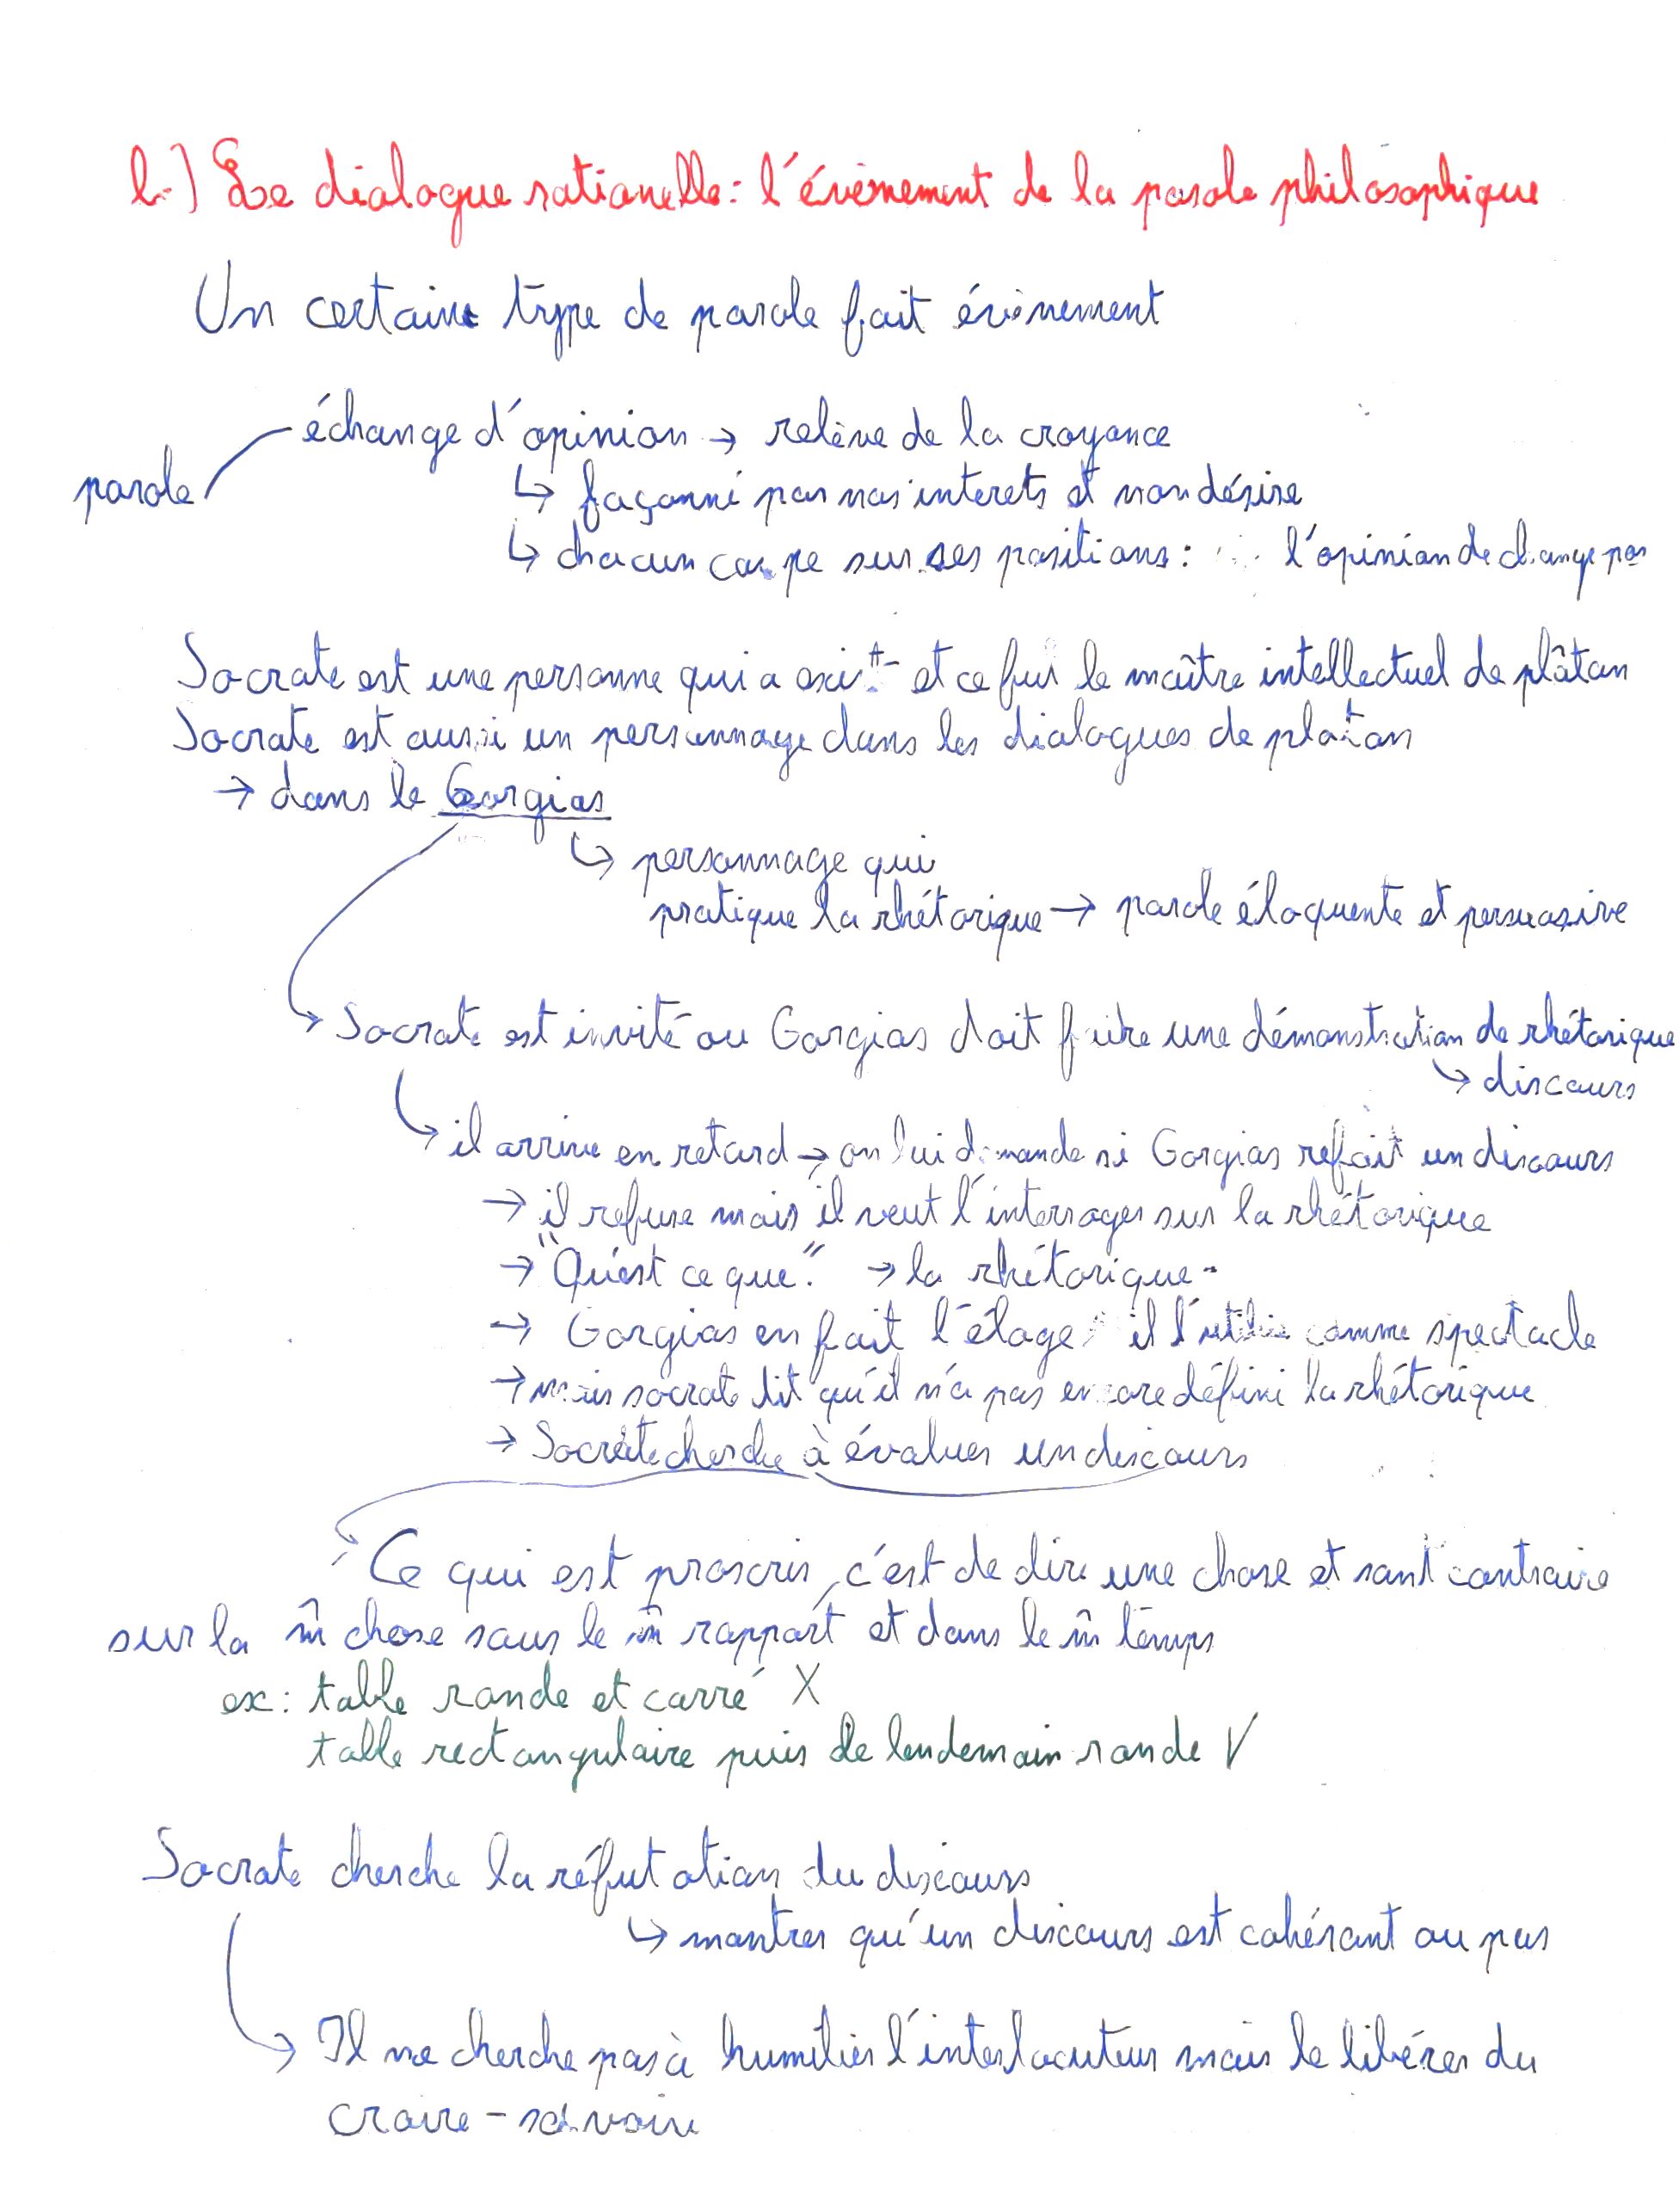 b.) Le dialogue rationelle : l'évènement de la parole philosophique
Un certaine type de parole fait évènement
échange d'opinion → relève de la croyance
parole
↳ façonné par nos interets et non désire
↳ chacun campe sur ses positions : l'opinion de change pas
Socrate est une personne qui a exist et ce fut le maître intellectuel de plâton
Socrate est aussi un personnage dans les dialogues de platon
→ dans le Gorgias
↳ personnage qui
pratique la rhétorique → parole éloquente et persuasive
↳ Socrate est invité ou Gorgias doit faire une démonstration de rhétorique
↳ discours
↳ il arrive en retard → on lui demande si Gorgias refait un discours
→ il refuse mais il veut l'interroger sur la rhétorique
→ "Qu'est ce que" → la rhétorique.
→ Gorgias en fait l'éloge, il l'utilise comme spectacle
→ mais socrate dit qu'il n'a pas encore défini la rhétorique
→ Socrate cherche à évaluer un discours
→ Ce qui est proscris, c'est de dire une chose et sont contraire
sur la m̂ chose sous le m̂ rapport et dans le m̂ temps
ex : table ronde et carré X
table rectangulaire puis le lendemain ronde V
Socrate cherche la réfutation du discours
↳ montrer qu'un discours est cohérant ou pas
↳ Il ne cherche pas à humilier l'interlocuteur mais le libérer du
croire - savoir